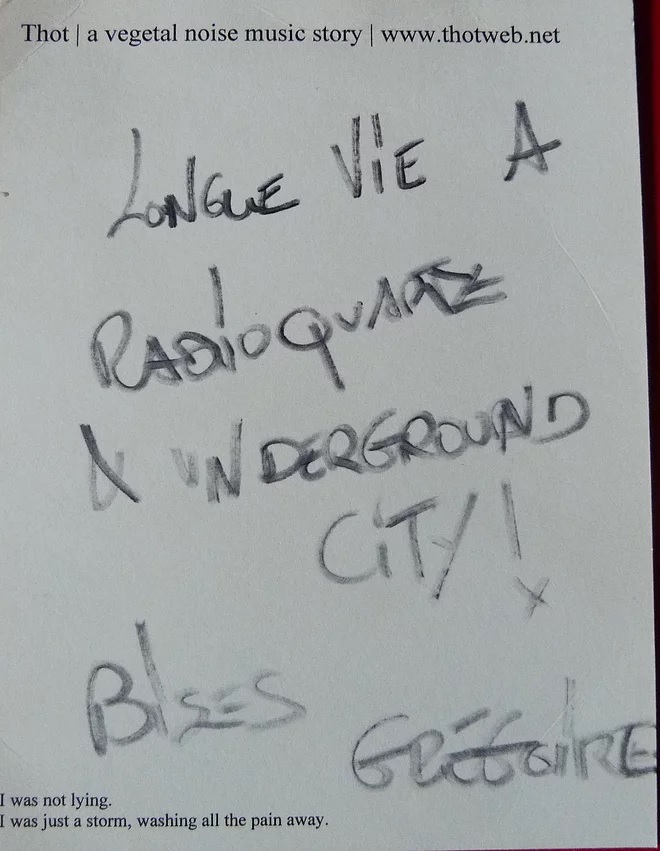 Thot | a vegetal noise music story | www.thotweb.net
LONGUE ViE A
RADiOQUARTZ
& UNDERGROUND
CiTY!
x
BiSES
GRÉGOiRE
I was not lying.
I was just a storm, washing all the pain away.